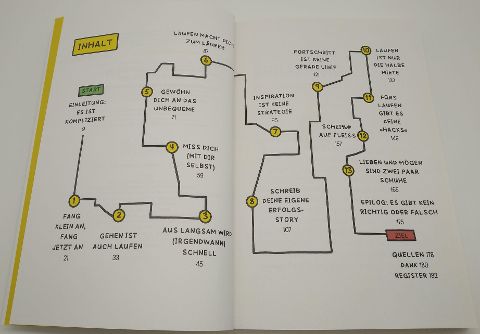 INHALT
START
EINLEITUNG:
ES IST
KOMPLIZIERT
9
1
FANG
KLEIN AN,
FANG
JETZT AN
21
2
GEHEN IST
AUCH LAUFEN
33
3
AUS LANGSAM WIRD
(IRGENDWANN)
SCHNELL
45
4
MISS DICH
(MIT DIR
SELBST)
59
5
GEWÖHN
DICH AN DAS
UNBEQUEME
71
6
LAUFEN MACHT
ZUM LÄUFER
7
INSPIRATION
IST KEINE
STRATEGIE
8
SCHREIB
DEINE EIGENE
ERFOLGS-
STORY
107
9
FORTSCHRITT
IST KEINE
GERADE LINIE
10
LAUFEN
IST NUR
DIE HALBE
MIETE
11
FÜRS
LAUFEN
GIBT ES
KEINE
»HACKS«
12
SCHEISS
AUF FLEISS
13
LIEBEN UND MÖGEN
SIND ZWEI PAAR
SCHUHE
EPILOG: ES GIBT KEIN
RICHTIG ODER FALSCH
ZIEL
QUELLEN
DANK
REGISTER